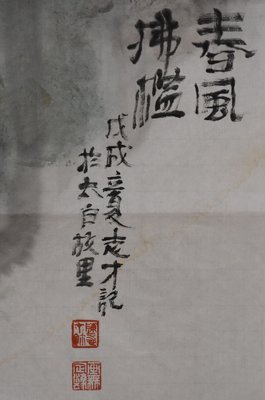 春風
拂檻
戊戌夏志才記
於太白故里